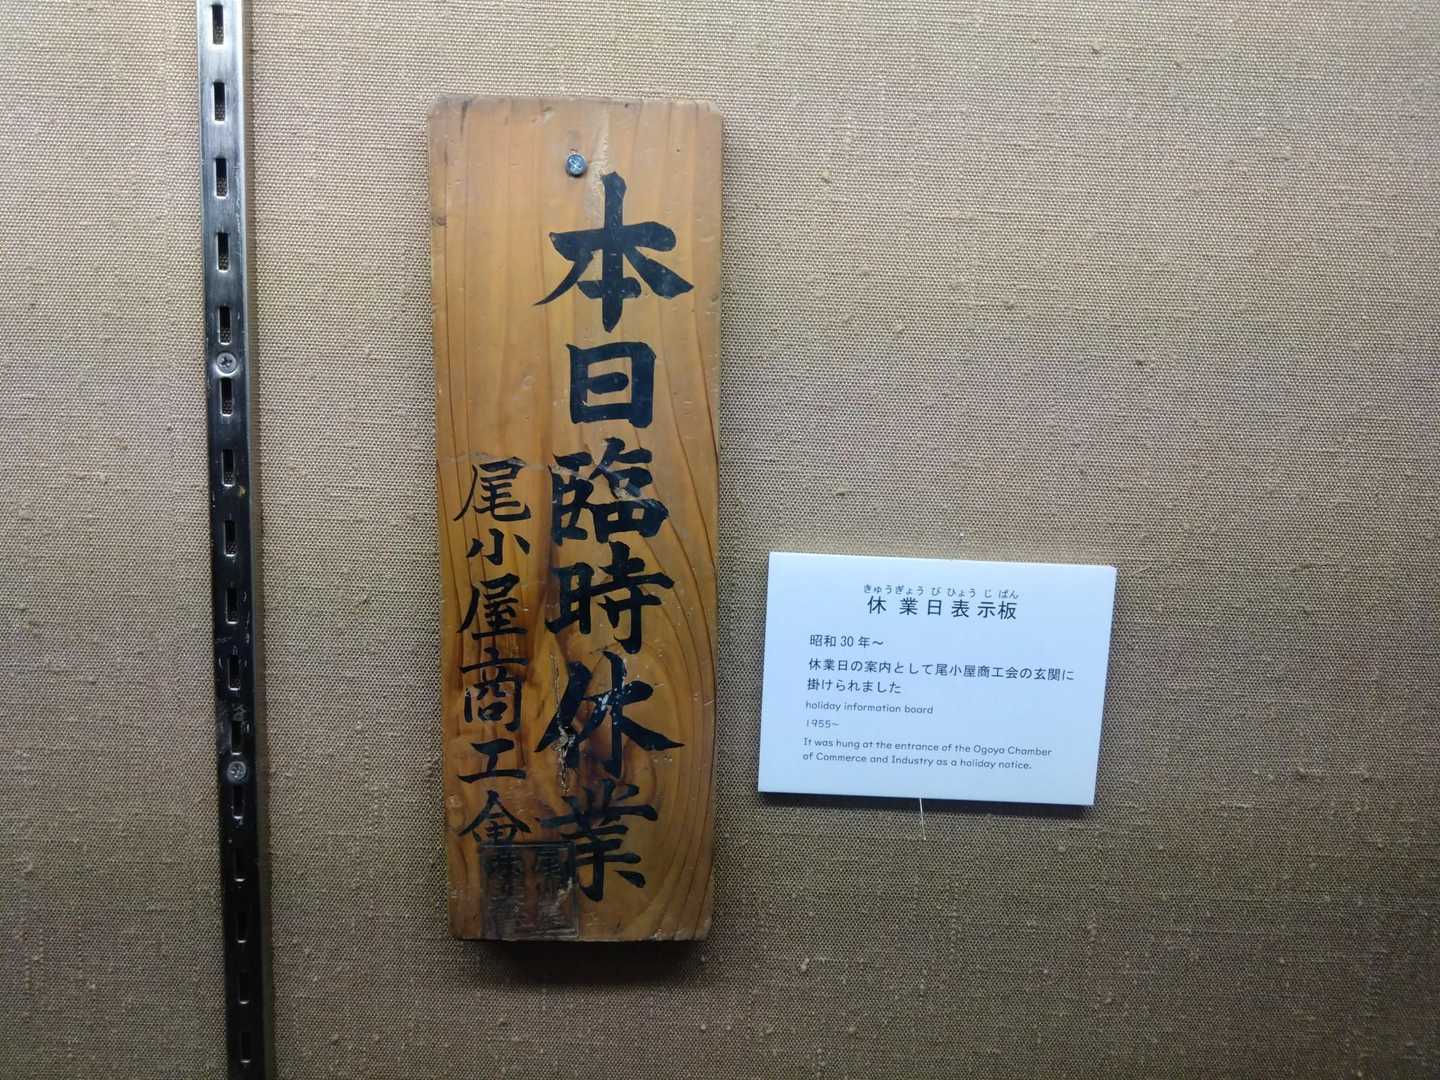 本日臨時休業
尾小屋商工会
きゅうぎょう び ひょう じ ばん
休業日表示板
昭和30年～
休業日の案内として尾小屋商工会の玄関に
掛けられました
holiday information board
1955~
It was hung at the entrance of the Ogoya Chamber
of Commerce and Industry as a holiday notice.